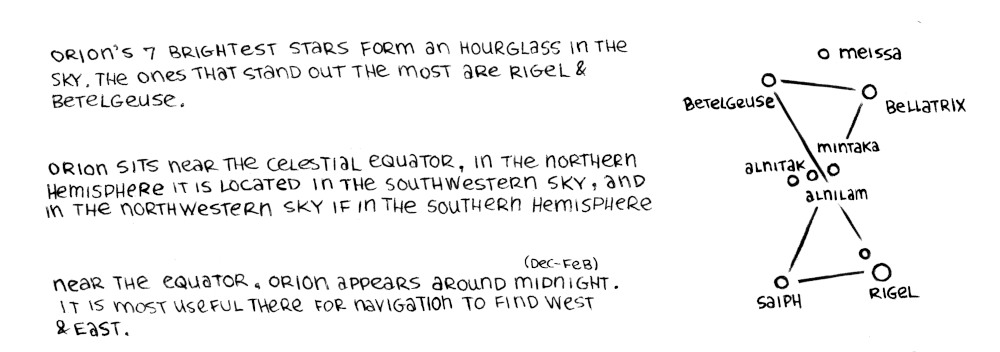 ORION'S 7 BRIGHTEST STARS FORM AN HOURGLASS IN THE
SKY. THE ONES THAT STAND OUT THE MOST ARE RIGEL &
BETELGEUSE.
ORION SITS NEAR THE CELESTIAL EQUATOR, IN THE NORTHERN
HEMISPHERE IT IS LOCATED IN THE SOUTHWESTERN SKY, AND
IN THE NORTHWESTERN SKY IF IN THE SOUTHERN HEMISPHERE
(DEC-FEB)
NEAR THE EQUATOR, ORION APPEARS AROUND MIDNIGHT.
IT IS MOST USEFUL THERE FOR NAVIGATION TO FIND WEST
& EAST.
MEISSA
BETELGEUSE
BELLATRIX
MINTAKA
ALNITAK
ALNILAM
SAIPH
RIGEL